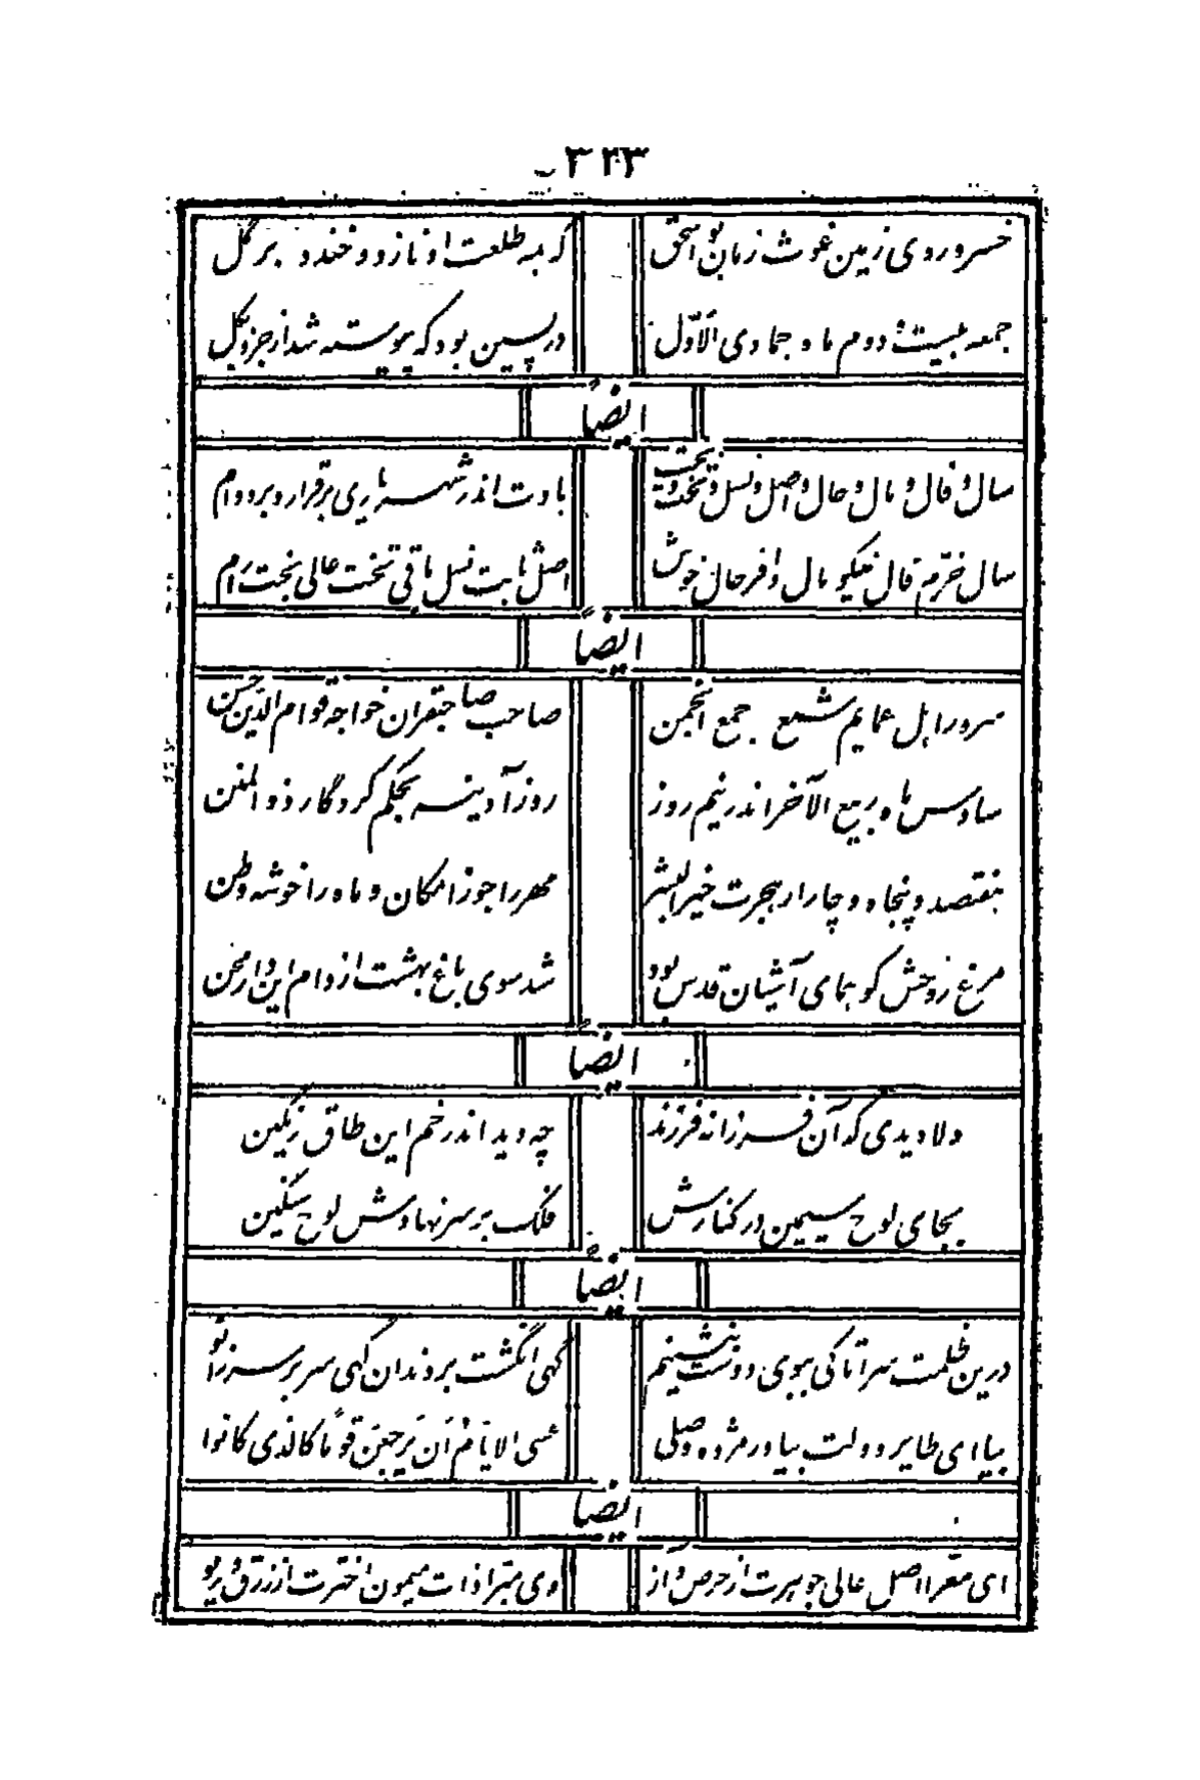 ۳۴۳
خسرو روی زمین غوث زمان بو اسحق
که بمه طلعت او نازد و خندد بر گل
جمعه بیست و دوم ماه جمادی الاول
در پسین بود که پیوسته شد از جزو بکل
ایضاً
سال و فال و مال و حال و اصل و نسل و تخت و بخت
بادت اندر شهریاری برقرار و بر دوام
سال خرم فال نیکو مال وافر حال خوش
اصل ثابت نسل باقی تخت عالی بخت رام
ایضاً
سرور اهل عمایم شمع جمع انجمن
صاحب صاحبقران خواجه قوام الدین حسن
سادس ماه ربیع الآخر اندر نیم روز
روز آدینه بحکم کردگار ذو المنن
هفتصد و پنجاه و چار از هجرت خیر البشر
مهر را جوزا مکان و ماه را خوشه وطن
مرغ روحش کو همای آشیان قدس بود
شد سوی باغ بهشت از دام این دار محن
ایضاً
دلا دیدی که آن فرزانه فرزند
چه دید اندر خم این طاق رنگین
بجای لوح سیمین در کنارش
فلک بر سر نهادش لوح سنگین
ایضاً
درین ظلمت سرا تا کی ببوی دوست بنشینم
گهی انگشت بر دندان گهی سر بر سر زانو
بیا ای طایر دولت بیاور مژده وصلی
عسی الایام ان یرجعن قوما کالذی کانوا
ایضاً
ای معرا اصل عالی جوهرت از حرص و آز
وی مبرا ذات میمون اخترت از زرق و ریو